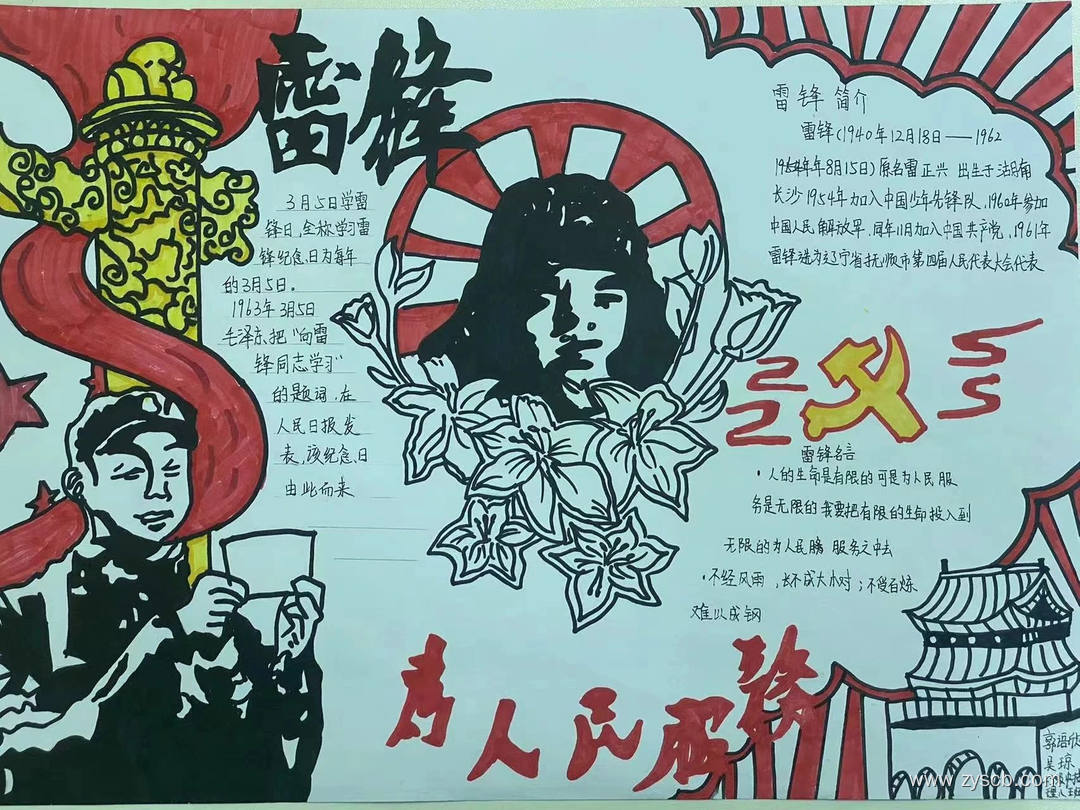 雷锋
3月5日学雷
锋日,全称学习雷
锋纪念日为每年
的3月5日。
1963年3月5日
毛泽东把“向雷
锋同志学习”
的题词,在
人民日报发
表,该纪念日
由此而来
雷锋简介
雷锋(1940年12月18日——1962
年8月15日)原名雷正兴 出生于湖南
长沙1954年加入中国少年先锋队,1960年参加
中国人民解放军,同年11月加入中国共产党,1961年
雷锋选为辽宁省抚顺市第四届人民代表大会代表
雷锋名言
·人的生命是有限的可是为人民服
务是无限的我要把有限的生命投入到
无限的为人民 服务之中去
·不经风雨,长不成大木对;不受百炼
难以成钢
为人民服务
郭语欣
吴琼
www.zyscb.com